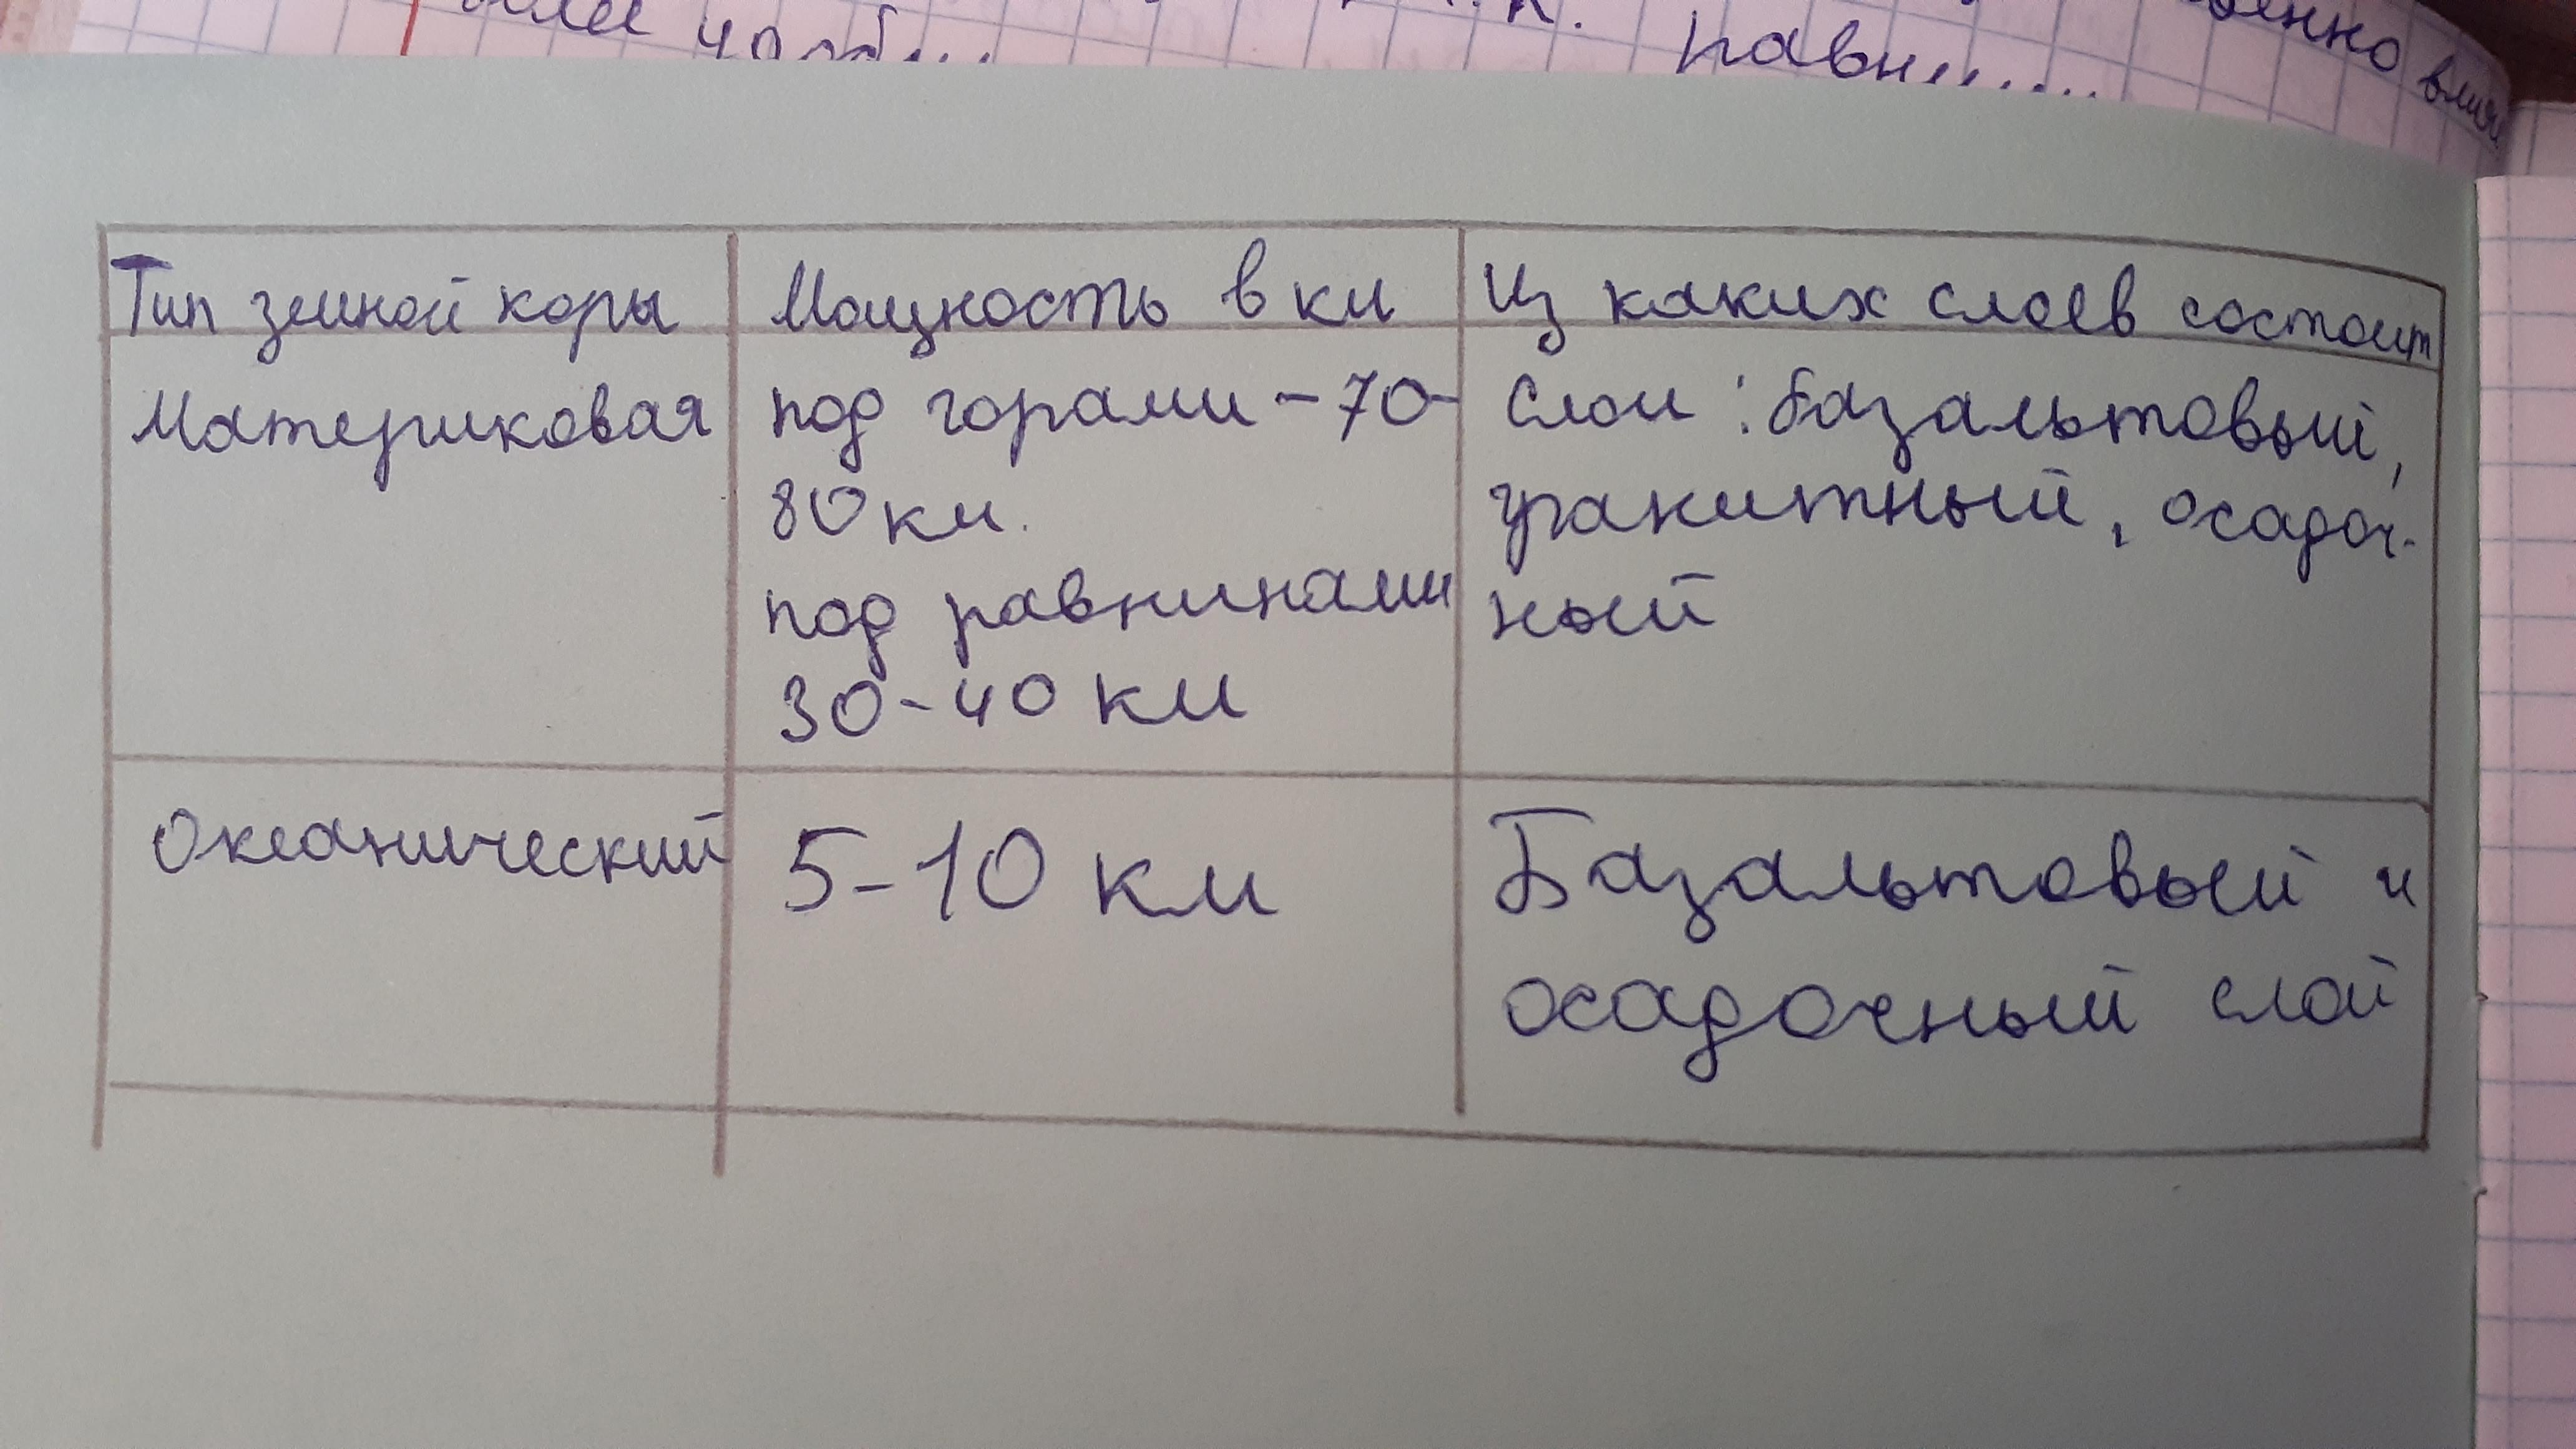 т.к.
Тип земной коры
Мощность в км
Из каких слоев состоит
Материковая
под горами - 70-
80 км.
под равнинами
30-40 км
Слои : базальтовый,
гранитный, осадоч-
ный
Океанический
5-10 км
Базальтовый и
осадочный слой